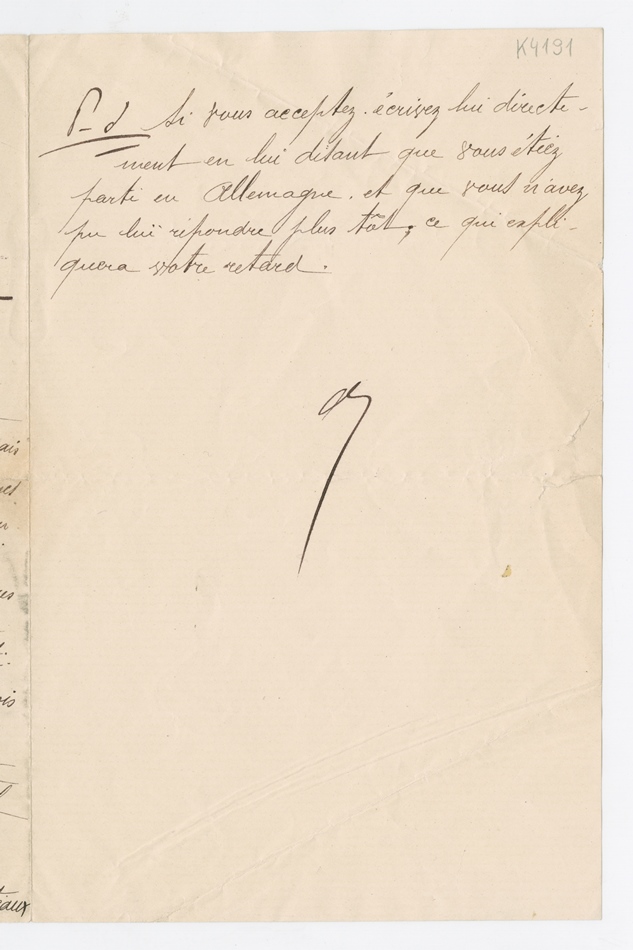 K4191
P-S Si vous acceptez. écrivez lui directe-
ment en lui disant que vous étiez
parti en Allemagne. et que vous n'avez
pu lui répondre plus tôt, ce qui expli-
quera votre retard.
ais
ois
iaux